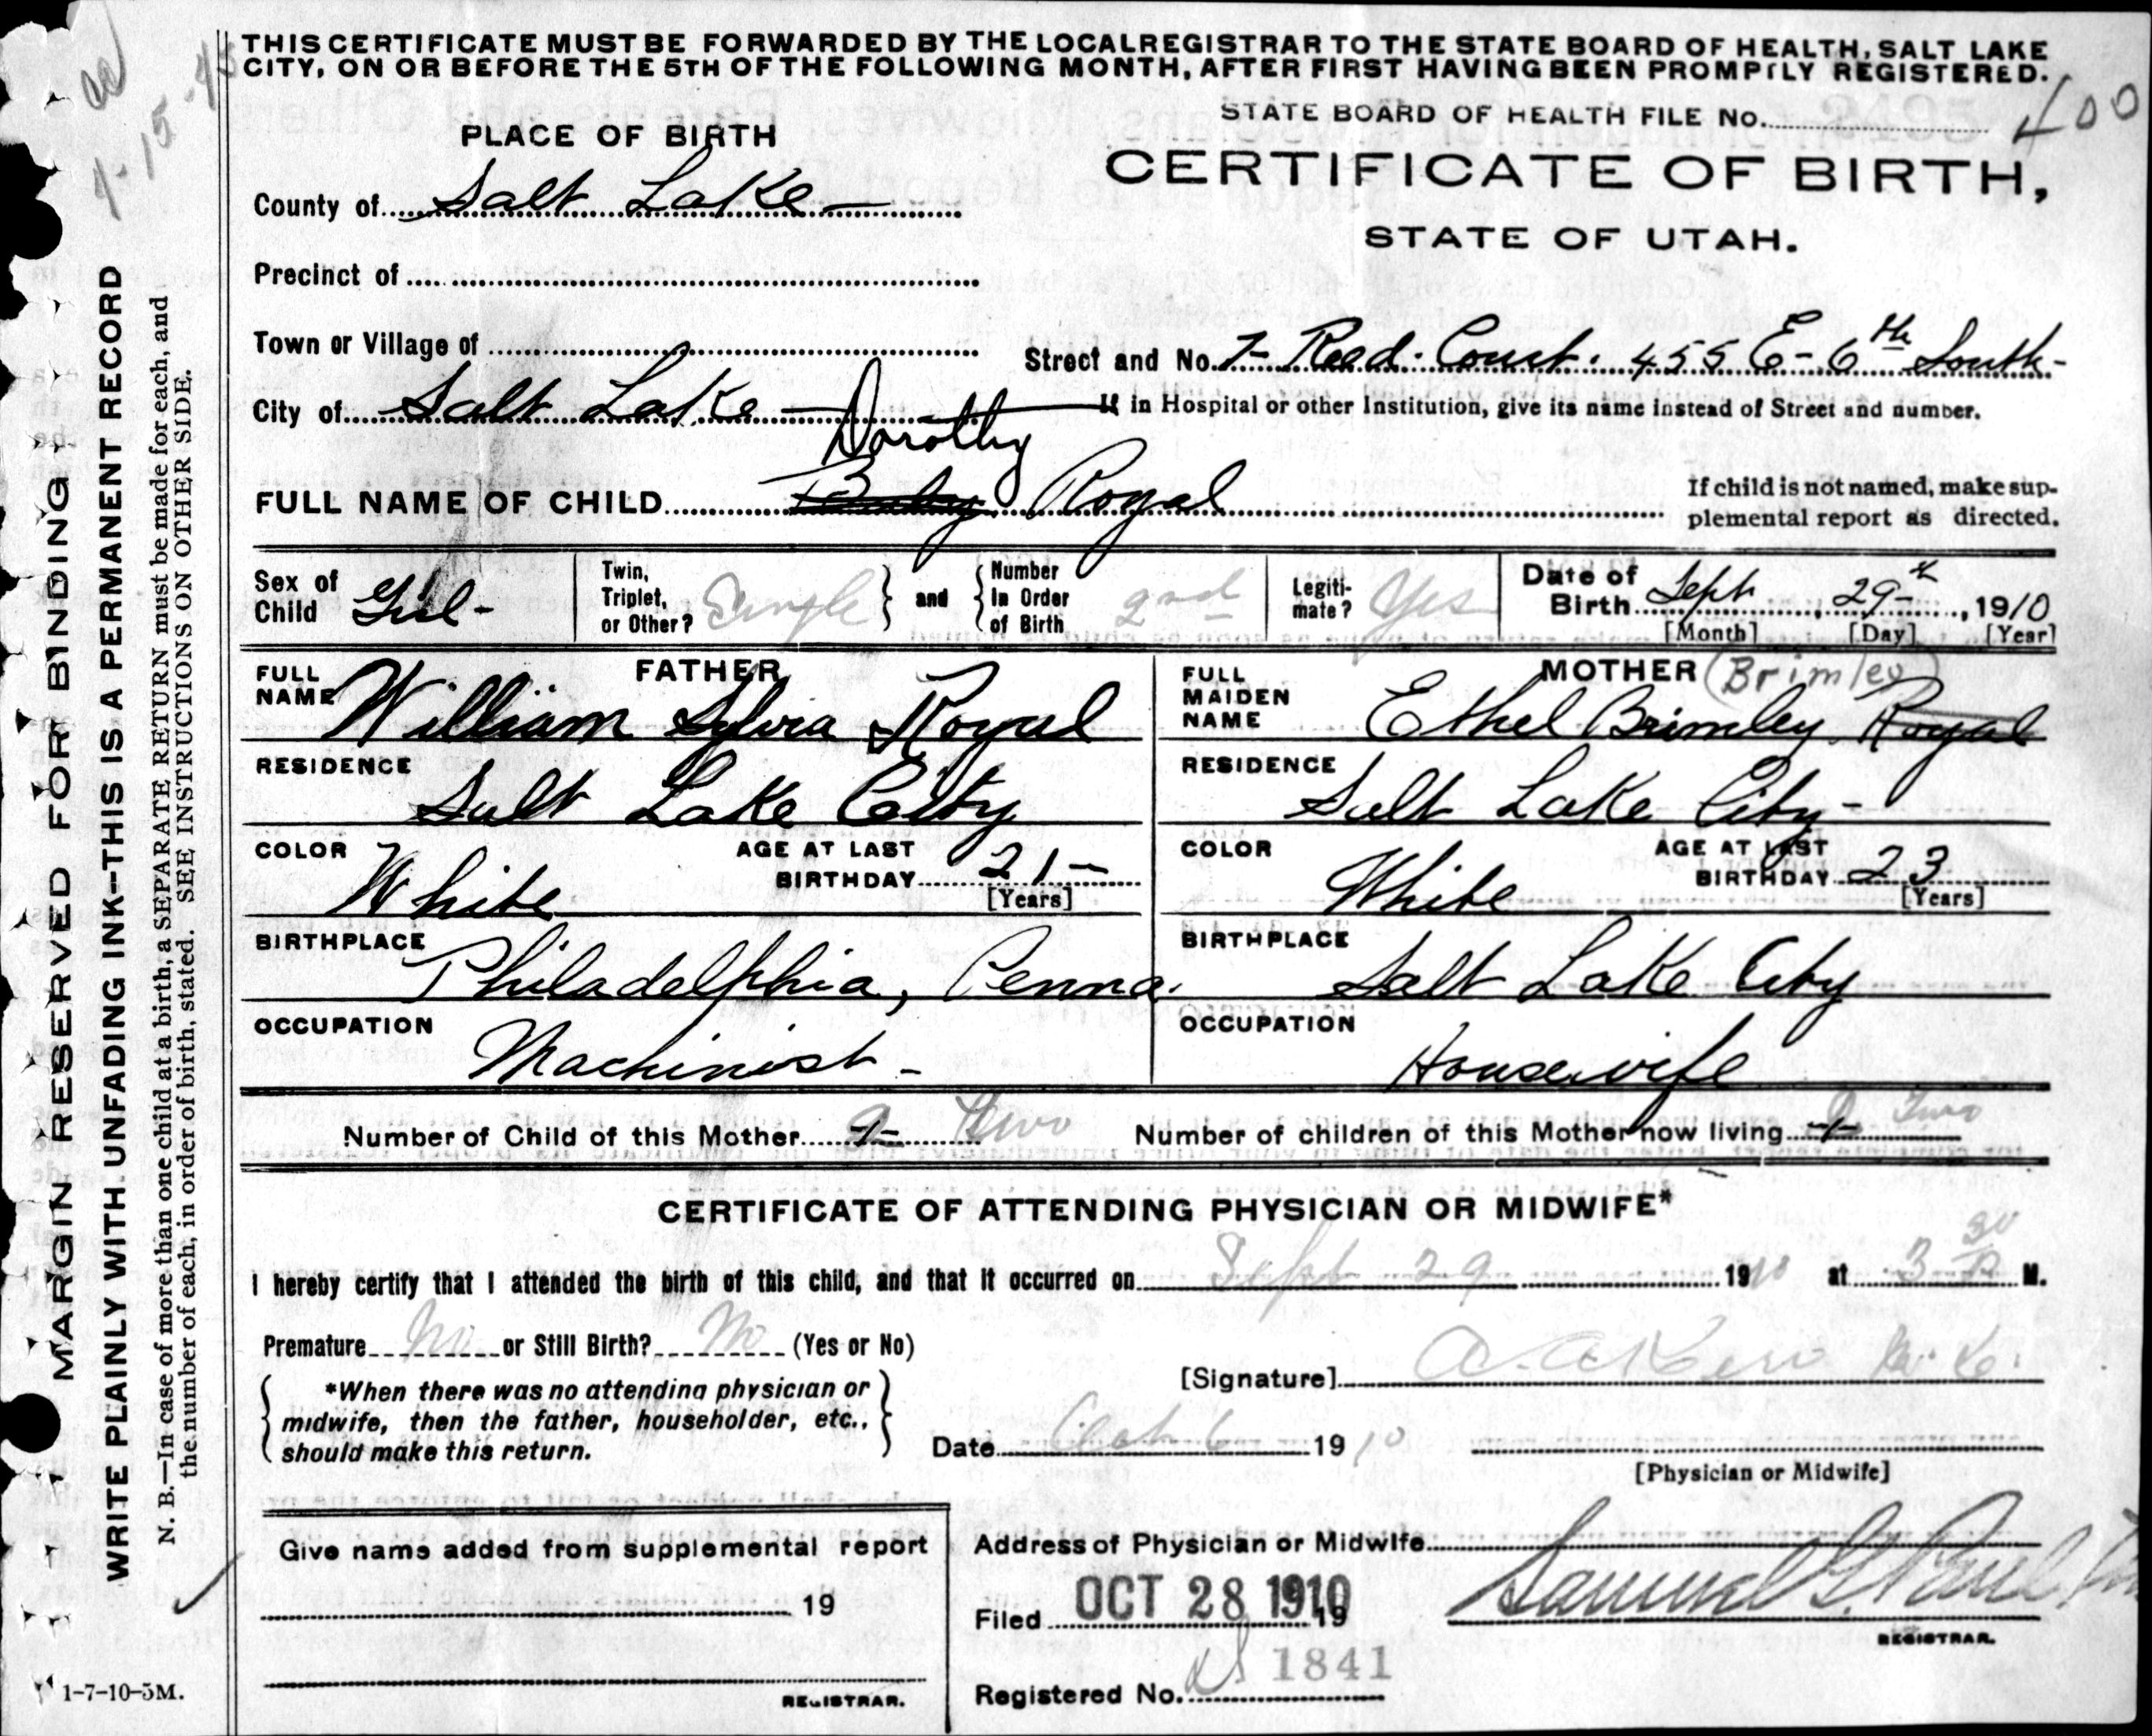 THIS CERTIFICATE MUST BE FORWARDED BY THE LOCAL REGISTRAR TO THE STATE BOARD OF HEALTH, SALT LAKE
CITY, ON OR BEFORE THE 5TH OF THE FOLLOWING MONTH, AFTER FIRST HAVING BEEN PROMPTLY REGISTERED.
STATE BOARD OF HEALTH FILE NO. 400
PLACE OF BIRTH
CERTIFICATE OF BIRTH,
STATE OF UTAH.
County of Salt Lake
Precinct of
Town or Village of
Street and No. 7- Reed Court. 455 E- 6th South-
City of Salt Lake
If in Hospital or other Institution, give its name instead of Street and number.
Dorothy
FULL NAME OF CHILD Baby Royal
If child is not named, make sup-
plemental report as directed.
Sex of Child Girl-
Twin, Triplet, or Other? Single and Number In Order of Birth 2nd
Legiti-mate? Yes
Date of Birth Sept 29th, 1910
[Month] [Day] [Year]
FATHER
FULL NAME William Sylvia Royal
RESIDENCE
Salt Lake City
COLOR White
AGE AT LAST BIRTHDAY 21-
[Years]
BIRTHPLACE
Philadelphia, Penna.
OCCUPATION
Machinist-
MOTHER (Brimley)
FULL MAIDEN NAME Ethel Brimley Royal
RESIDENCE
Salt Lake City-
COLOR White
AGE AT LAST BIRTHDAY 23
[Years]
BIRTHPLACE
Salt Lake City
OCCUPATION
Housewife
Number of Child of this Mother Two
Number of children of this Mother now living Two
CERTIFICATE OF ATTENDING PHYSICIAN OR MIDWIFE*
I hereby certify that I attended the birth of this child, and that it occurred on Sept 29 1910 at 3 30 M.
Premature No or Still Birth? No (Yes or No)
*When there was no attending physician or
midwife, then the father, householder, etc.,
should make this return.
[Signature]
Date Oct 6 1910
[Physician or Midwife]
Give name added from supplemental report
19
REGISTRAR.
Address of Physician or Midwife
Filed OCT 28 1910 19
Samuel G. Paul
REGISTRAR.
Registered No. 1841
MARGIN RESERVED FOR BINDING
WRITE PLAINLY WITH UNFADING INK—THIS IS A PERMANENT RECORD
N. B.—In case of more than one child at a birth, a SEPARATE RETURN must be made for each, and
the number of each, in order of birth, stated. SEE INSTRUCTIONS ON OTHER SIDE.
1-7-10-5M.